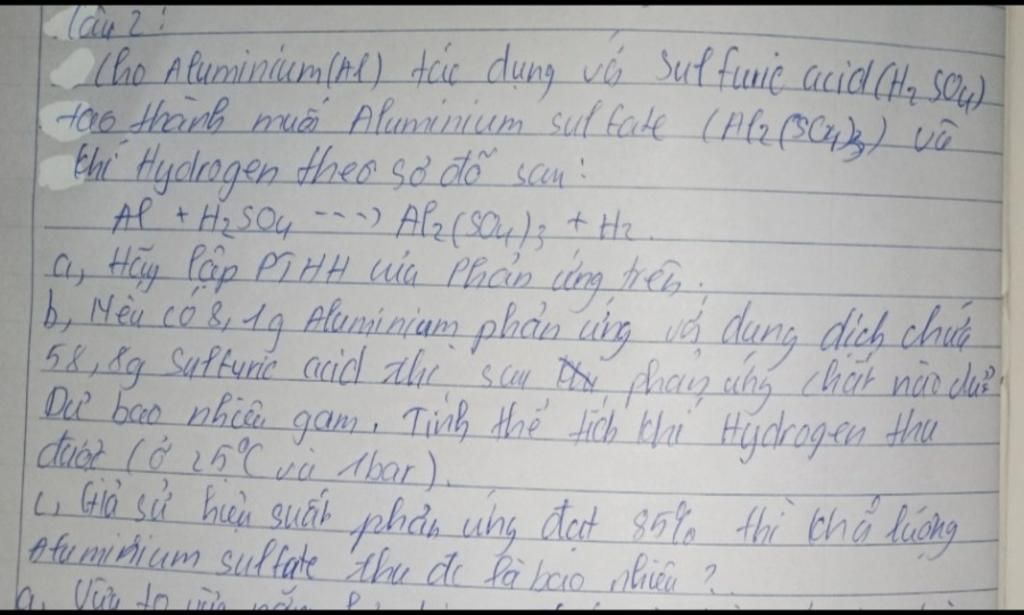 Câu 2:
Cho Aluminium(Al) tác dụng với Sulfuric acid(H₂SO₄)
tạo thành muối Aluminium sulfate (Al₂(SO₄)₃) và
khí Hydrogen theo sơ đồ sau:
Al + H₂SO₄ ---> Al₂(SO₄)₃ + H₂.
a, Hãy lập PTHH của Phản ứng trên.
b, Nếu có 8,1g Aluminium phản ứng với dung dịch chứa
58,8g Sulfuric acid thì sau phản ứng chất nào dư?
Dư bao nhiêu gam. Tính thể tích khí Hydrogen thu
được (ở 25°C và 1bar).
c, Giả sử hiệu suất phản ứng đạt 85% thì khối lượng
Aluminium sulfate thu đc là bao nhiêu?